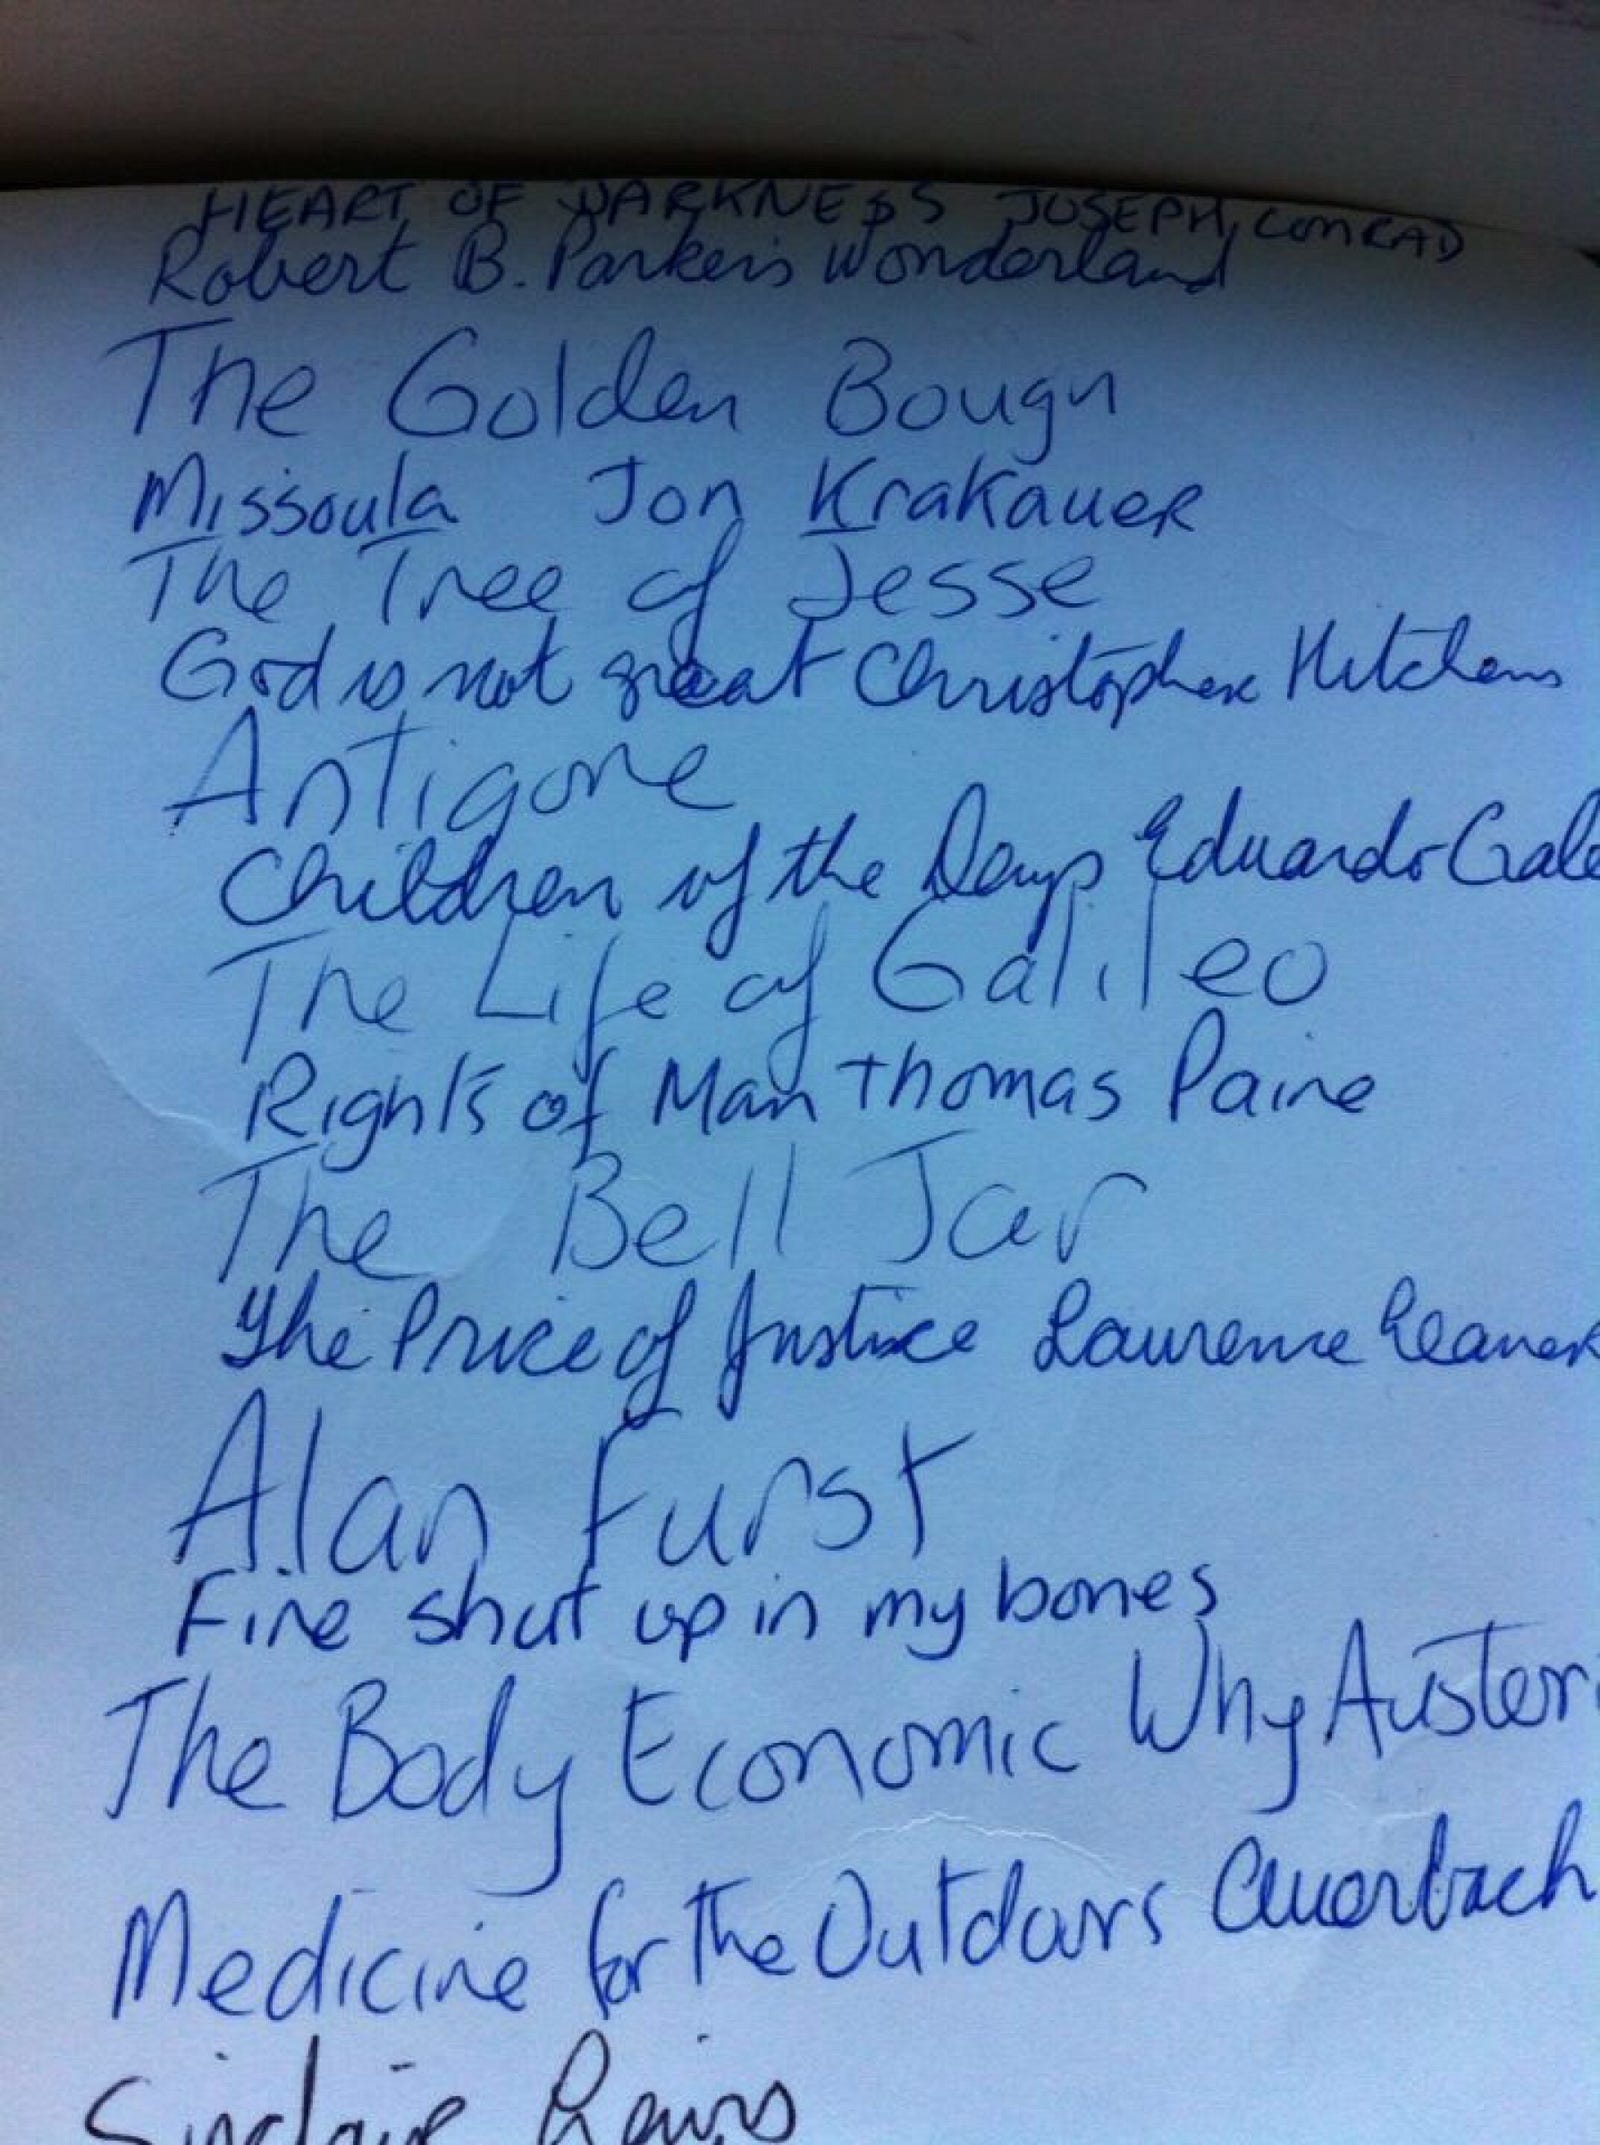 HEART OF DARKNESS JOSEPH CONRAD
Robert B. Parker's Wonderland
The Golden Bough
Missoula Jon Krakauer
The Tree of Jesse
God is not great Christopher Hitchens
Antigone
Children of the Days Eduardo Gale
The Life of Galileo
Rights of Man Thomas Paine
The Bell Jar
The Price of Justice Laurence Leamer
Alan Furst
Fire shut up in my bones
The Body Economic Why Austeri
Medicine for the Outdoors Auerbach
Sinclair Lewis